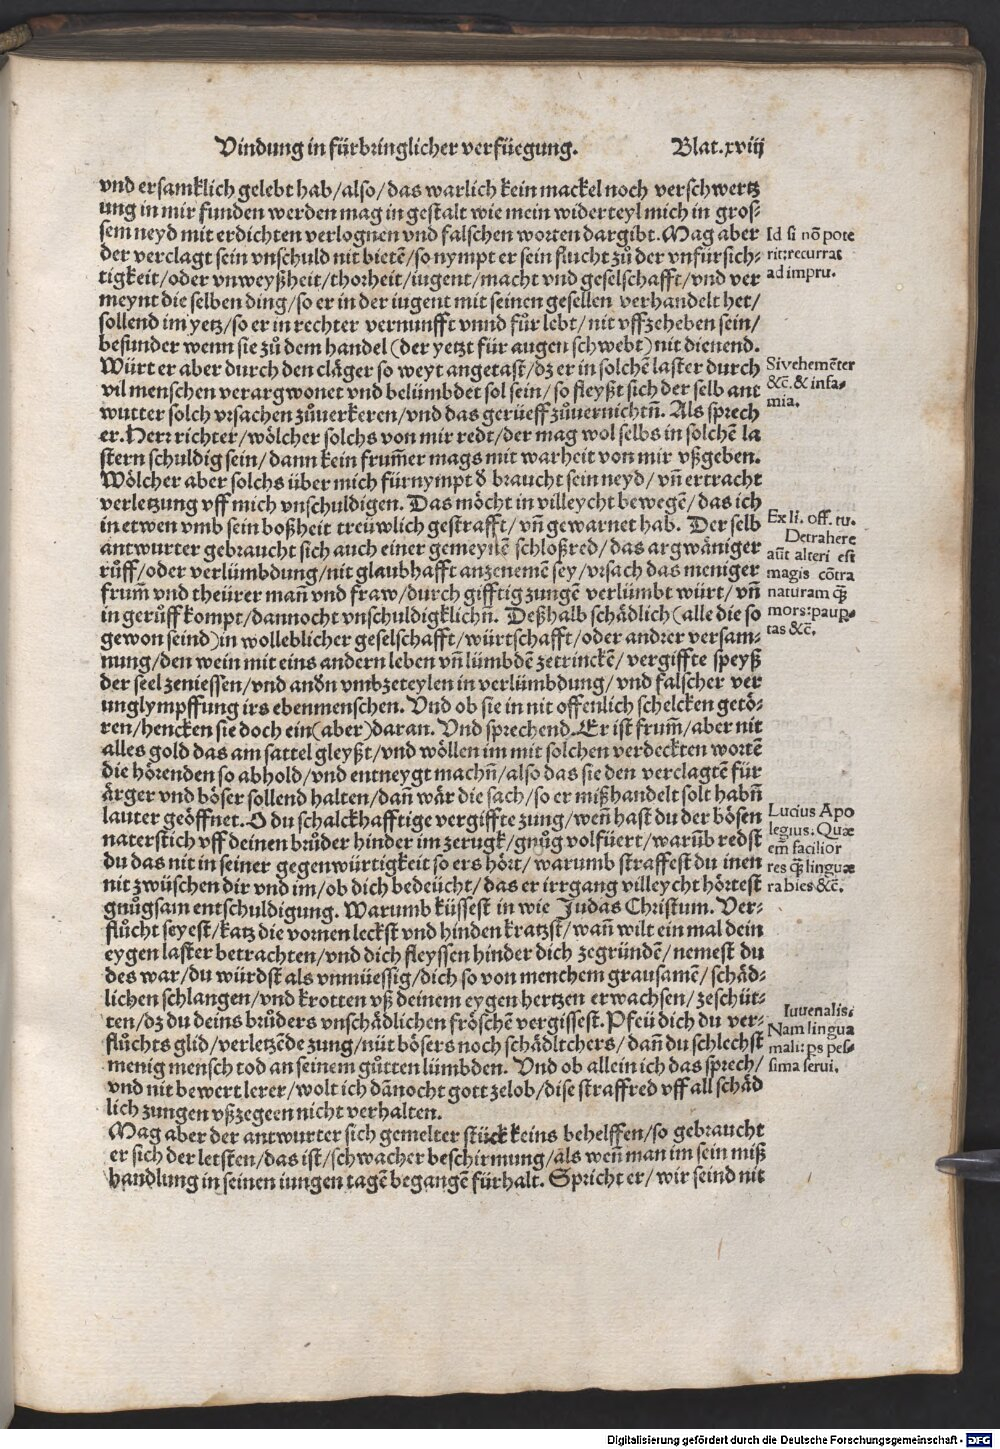 Vindung in fürbringlicher verfüegung. Blat.xviij
vnd ersamklich gelebt hab/also/das warlich kein mackel noch verschwertz
ung in mir funden werden mag in gestalt wie mein widerteyl mich in gros⸗
sem neyd mit erdichten verlognen vnd falschen worten dargibt. Mag aber
der verclagt sein vnschuld nit bietē/so nympt er sein flucht zů der vnfürsich⸗
tigkeit/oder vnweyßheit/thorheit/iugent/macht vnd geselschafft/vnd ver
meynt die selben ding/so er in der iugent mit seinen gesellen verhandelt het/
sollend im yetz/so er in rechter vernunfft vnnd fůr lebt/nit vffzeheben sein/
besunder wenn sie zů dem handel (der yetzt für augen schwebt) nit dienend.
Würt er aber durch den cläger so weyt angetast/dz er in solchē laster durch
vil menschen verargwonet vnd belümbdet sol sein/so fleyßt sich der selb ant
wutter solch vrsachen zůuerkeren/vnd das gerüeff zůuernichtn̄. Als sprech
er. Herr richter/wölcher solchs von mir redt/der mag wol selbs in solchē la
stern schuldig sein/dann kein frum̄er mags mit warheit von mir vßgeben.
Wölcher aber solchs über mich fürnympt ð braucht sein neyd/vn̄ ertracht
verletzung vff mich vnschuldigen. Das möcht in villeycht bewegē/das ich
in etwen vmb sein boßheit treüwlich gestrafft/vn̄ gewarnet hab. Der selb
antwurter gebraucht sich auch einer gemeynē schloßred/das argwäniger
růff/oder verlümbdung/nit glaubhafft anzenemē sey/vrsach das meniger
frum̄ vnd theürer man̄ vnd fraw/durch gifftig zungē verlümbt würt/vn̄
in gerůff kompt/dannocht vnschuldigklichn̄. Deßhalb schädlich (alle die so
gewon seind) in wolleblicher geselschafft/würtschafft/oder andrer versam⸗
nung/den wein mit eins andern leben vn̄ lümbdē zetrinckē/vergiffte speyß
der seel zeniessen/vnd andn vmbzeteylen in verlümbdung/vnd falscher ver
unglympffung irs ebenmenschen. Vnd ob sie in nit offenlich schelcken getö⸗
ren/hencken sie doch ein (aber) daran. Vnd sprechend. Er ist frum̄/aber nit
alles gold das am sattel gleyßt/vnd wöllen im mit solchen verdeckten wortē
die hörenden so abhold/vnd entneygt machn̄/also das sie den verclagtē für
ärger vnd böser sollend halten/dan̄ wär die sach/so er mißhandelt solt habn̄
lauter geöffnet. O du schalckhafftige vergiffte zung/wen̄ hast du der bösen
naterstich vff deinen brůder hinder im zerugk/gnůg volfüert/warūb redst
du das nit in seiner gegenwürtigkeit so ers hört/warumb straffest du inen
nit zwüschen dir vnd im/ob dich bedeücht/das er irrgang villeycht hörtest
gnůgsam entschuldigung. Warumb küssest in wie Judas Christum. Ver⸗
flůcht seyest/katz die vornen leckst vnd hinden kratzst/wan̄ wilt ein mal dein
eygen laster betrachten/vnd dich fleyssen hinder dich zegründē/nemest du
des war/du würdst als vnmüessig/dich so von menchem grausamē/schäd⸗
lichen schlangen/vnd krotten vß deinem eygen hertzen erwachsen/zeschüt⸗
ten/dz du deins brůders vnschädlichen fröschē vergissest. Pfeü dich du ver⸗
flůchts glid/verletzēde zung/nüt bösers noch schädltchers/dan̄ du schlechst
menig mensch tod an seinem gůtten lümbden. Vnd ob allein ich das sprech/
vnd nit bewert lerer/wolt ich dānocht gott zelob/dise straffred vff all schäd
lich zungen vßzegeen nicht verhalten.
Mag aber der antwurter sich gemelter stück keins behelffen/so gebraucht
er sich der letsten/das ist/schwacher beschirmung/als wen̄ man im sein miß
handlung in seinen iungen tagē begangē fürhalt. Spricht er/wir seind nit
Id si nō pote
rit: recurrat
ad impru.
Si vehemēter
&c̄. & infa⸗
mia.
Ex li. off. tu.
Detrahere
aūt alteri est
magis cōtra
naturam q̄
mors: paup⸗
tas &c̄.
Lucius Apo
legius. Quæ
em̄ facilior
res q̄ linguæ
rabies &c̄.
Iuuenalis:
Nam lingua
mali: ps pes⸗
sima serui.
Digitalisierung gefördert durch die Deutsche Forschungsgemeinschaft - DFG